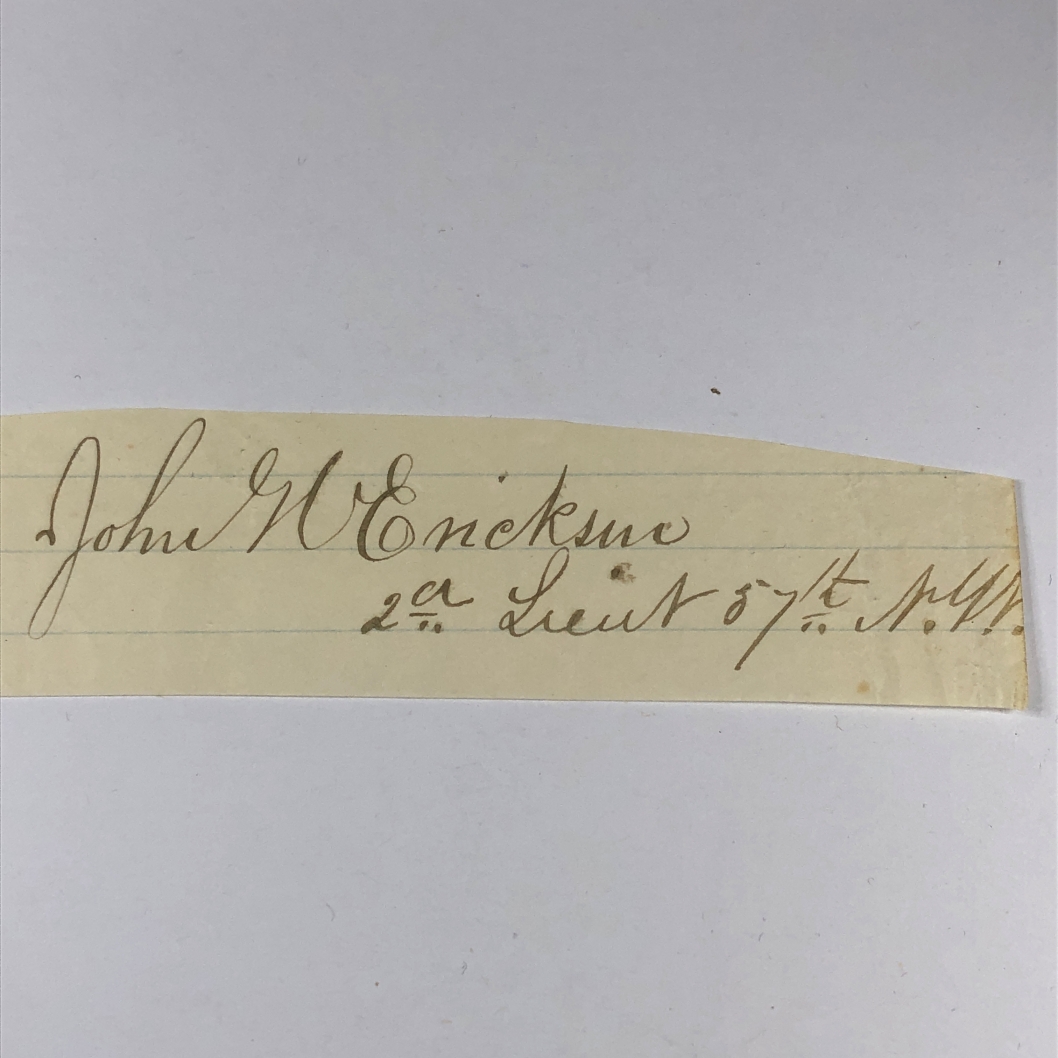 John W Erickson
2d Lieut 57th N.Y.V.